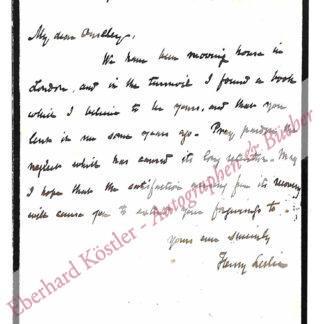 My dear Ouseley,
We have been moving house in
London, and in the turmoil I found a book
which I believe to be yours, and that you
lent to me some years ago - Pray pardon the
neglect which has caused its long retention. May
I hope that the satisfaction arising from its recovery
will cause you to extend your forgiveness to
Yours ever sincerely
Henry Leslie
Eberhard Köstler - Autographen & Bücher